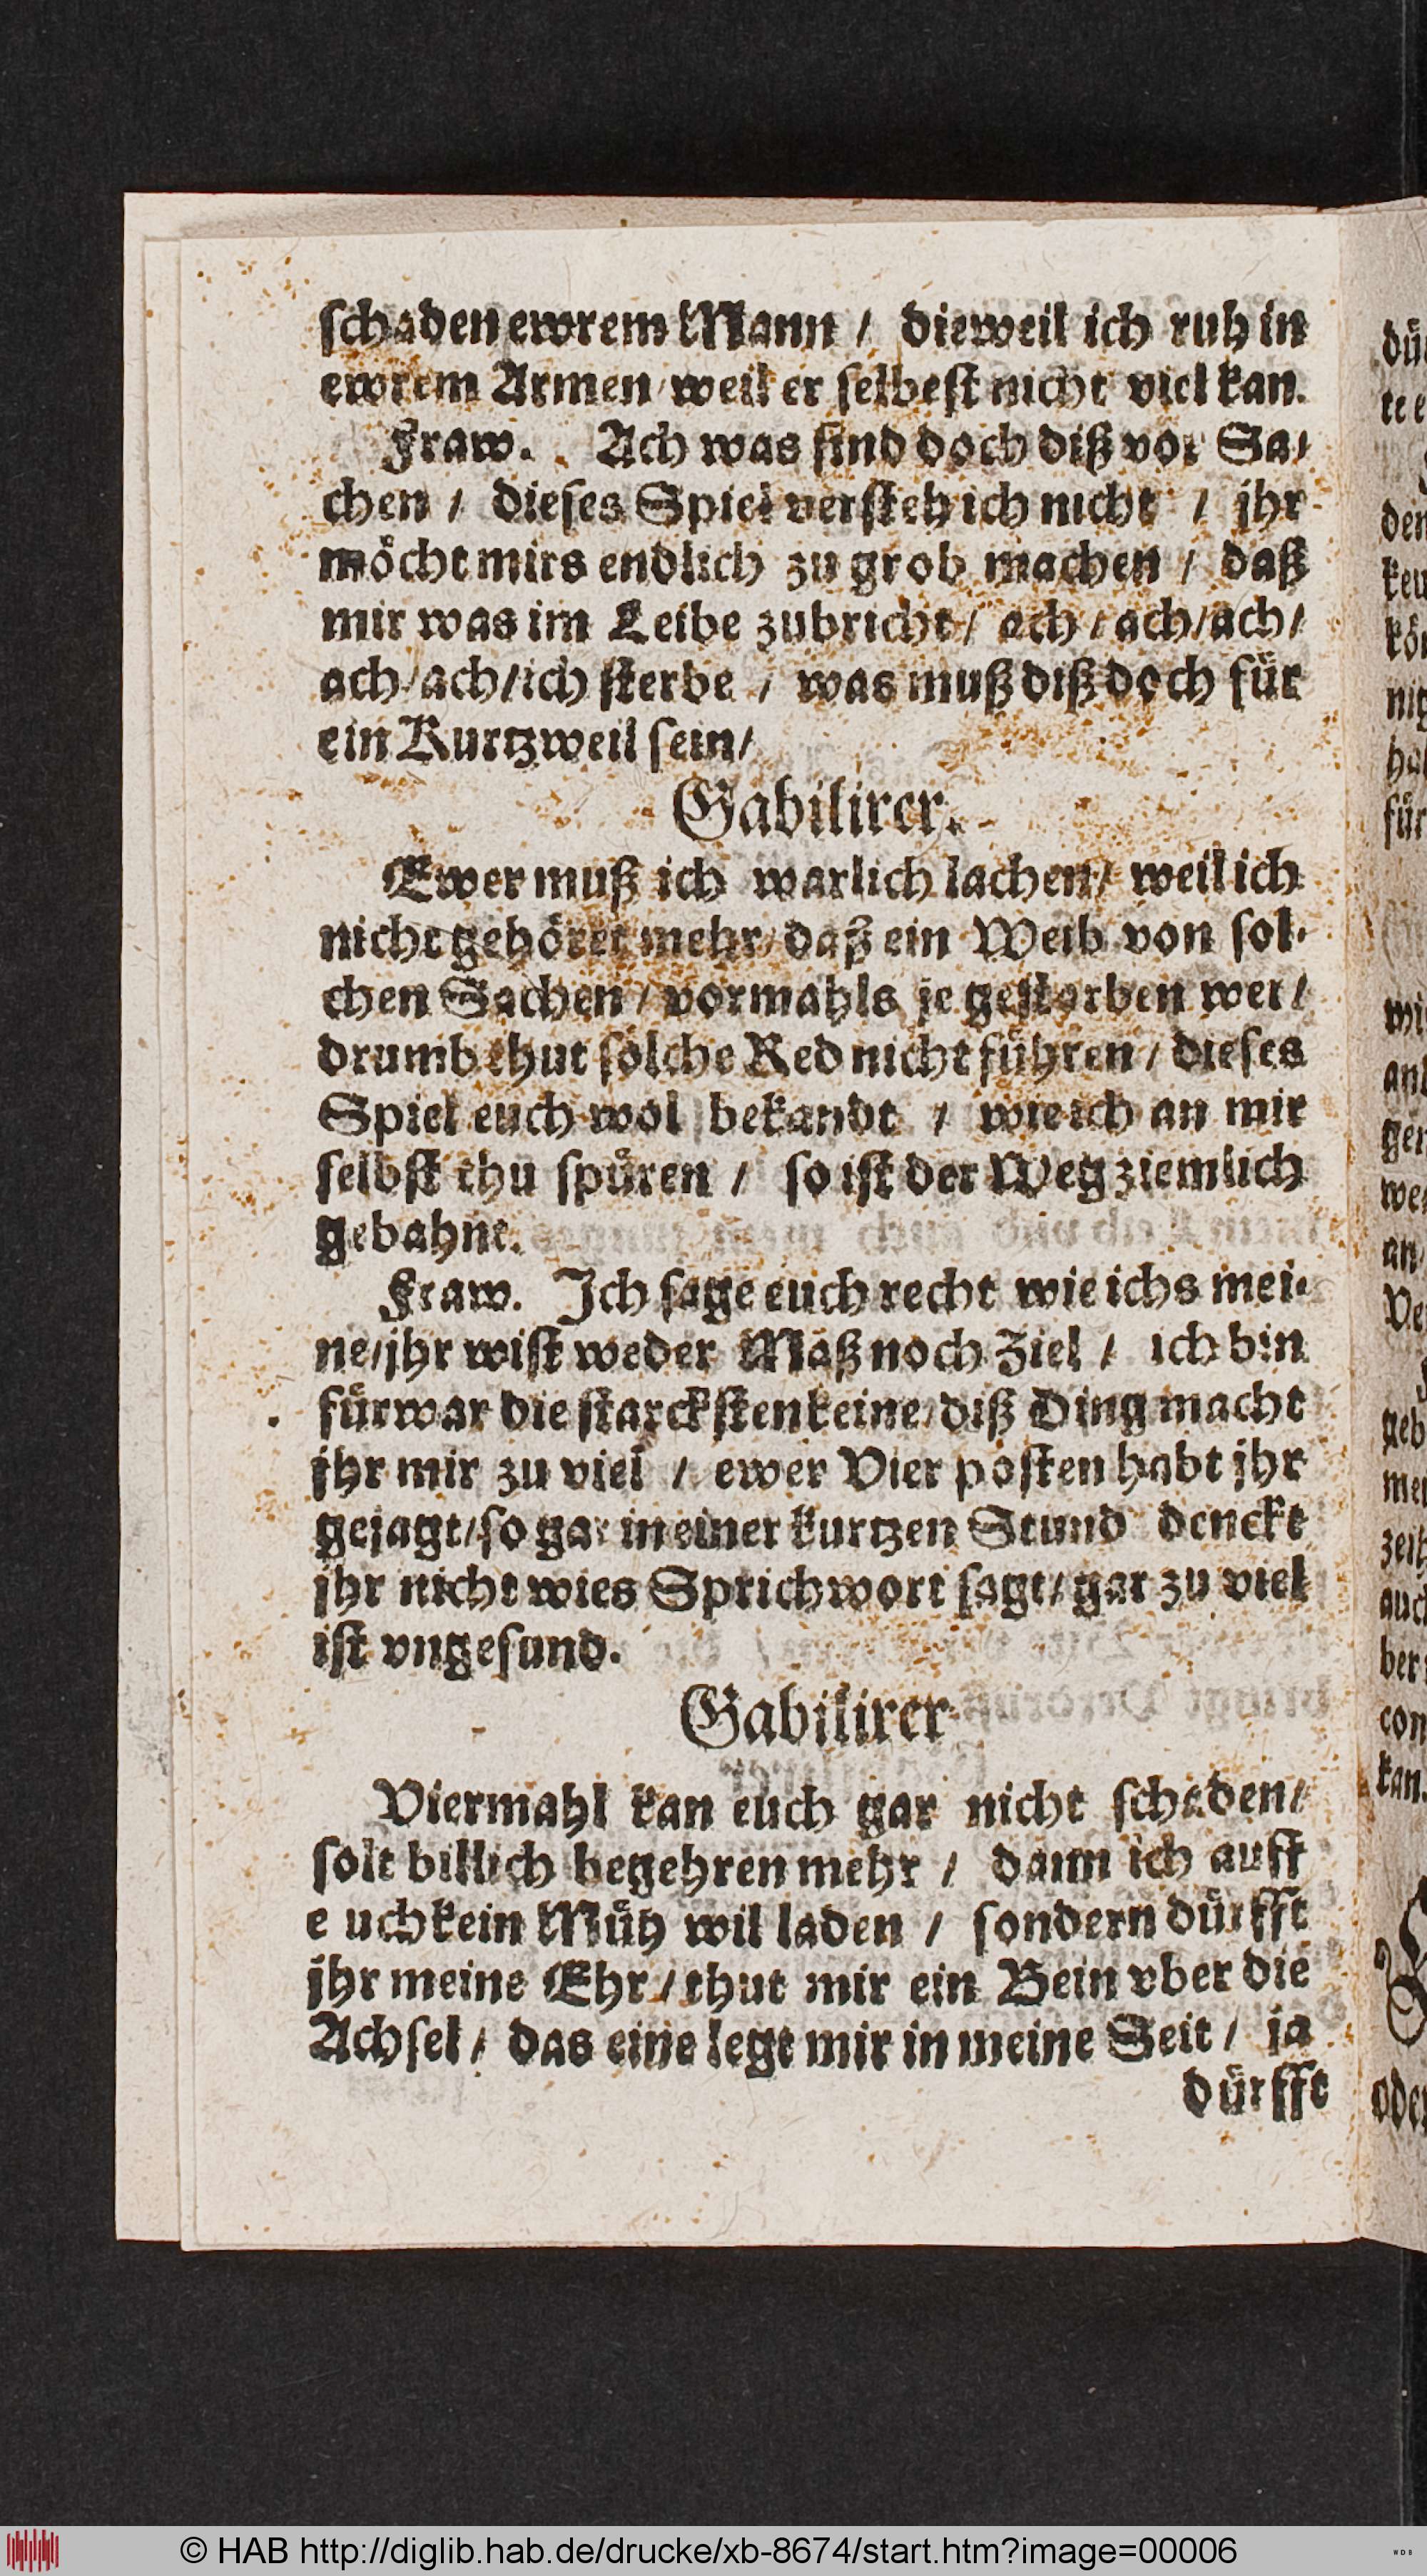 schaden ewrem Mann / dieweil ich ruh in
ewrem Armen / weil er selbest nicht viel kan.
Fraw. Ach was sind doch diß vor Sa-
chen / dieses Spiel versteh ich nicht / jhr
möcht mirs endlich zu grob machen / daß
mir was im Leibe zubricht / ach / ach / ach /
ach / ach / ich sterbe / was muß diß doch für
ein Kurtzweil sein /
Gabilirer.
Ewer muß ich warlich lachen / weil ich
nicht gehöret mehr / daß ein Weib von sol-
chen Sachen / vormahls je gestorben wer /
drumb thut solche Red nicht führen / dieses
Spiel euch wol bekandt / wie ich an mir
selbst thu spüren / so ist der Weg ziemlich
gebahnt.
Fraw. Ich sage euch recht wie ichs mei-
ne / jhr wist weder Maß noch Ziel / ich bin
fürwar die starcksten keine / diß Ding macht
jhr mir zu viel / ewer Vier posten habt jhr
gejagt / so gar in einer kurtzen Stund denckt
jhr nicht wies Sprichwort sagt / gar zu viel
ist vngesund.
Gabilirer
Viermahl kan euch gar nicht schaden /
solt billich begehren mehr / dann ich auff
e uch kein Müh wil laden / sondern dürfft
jhr meine Ehr / thut mir ein Bein vber die
Achsel / das eine legt mir in meine Seit / ja
dürfft
© HAB http://diglib.hab.de/drucke/xb-8674/start.htm?image=00006